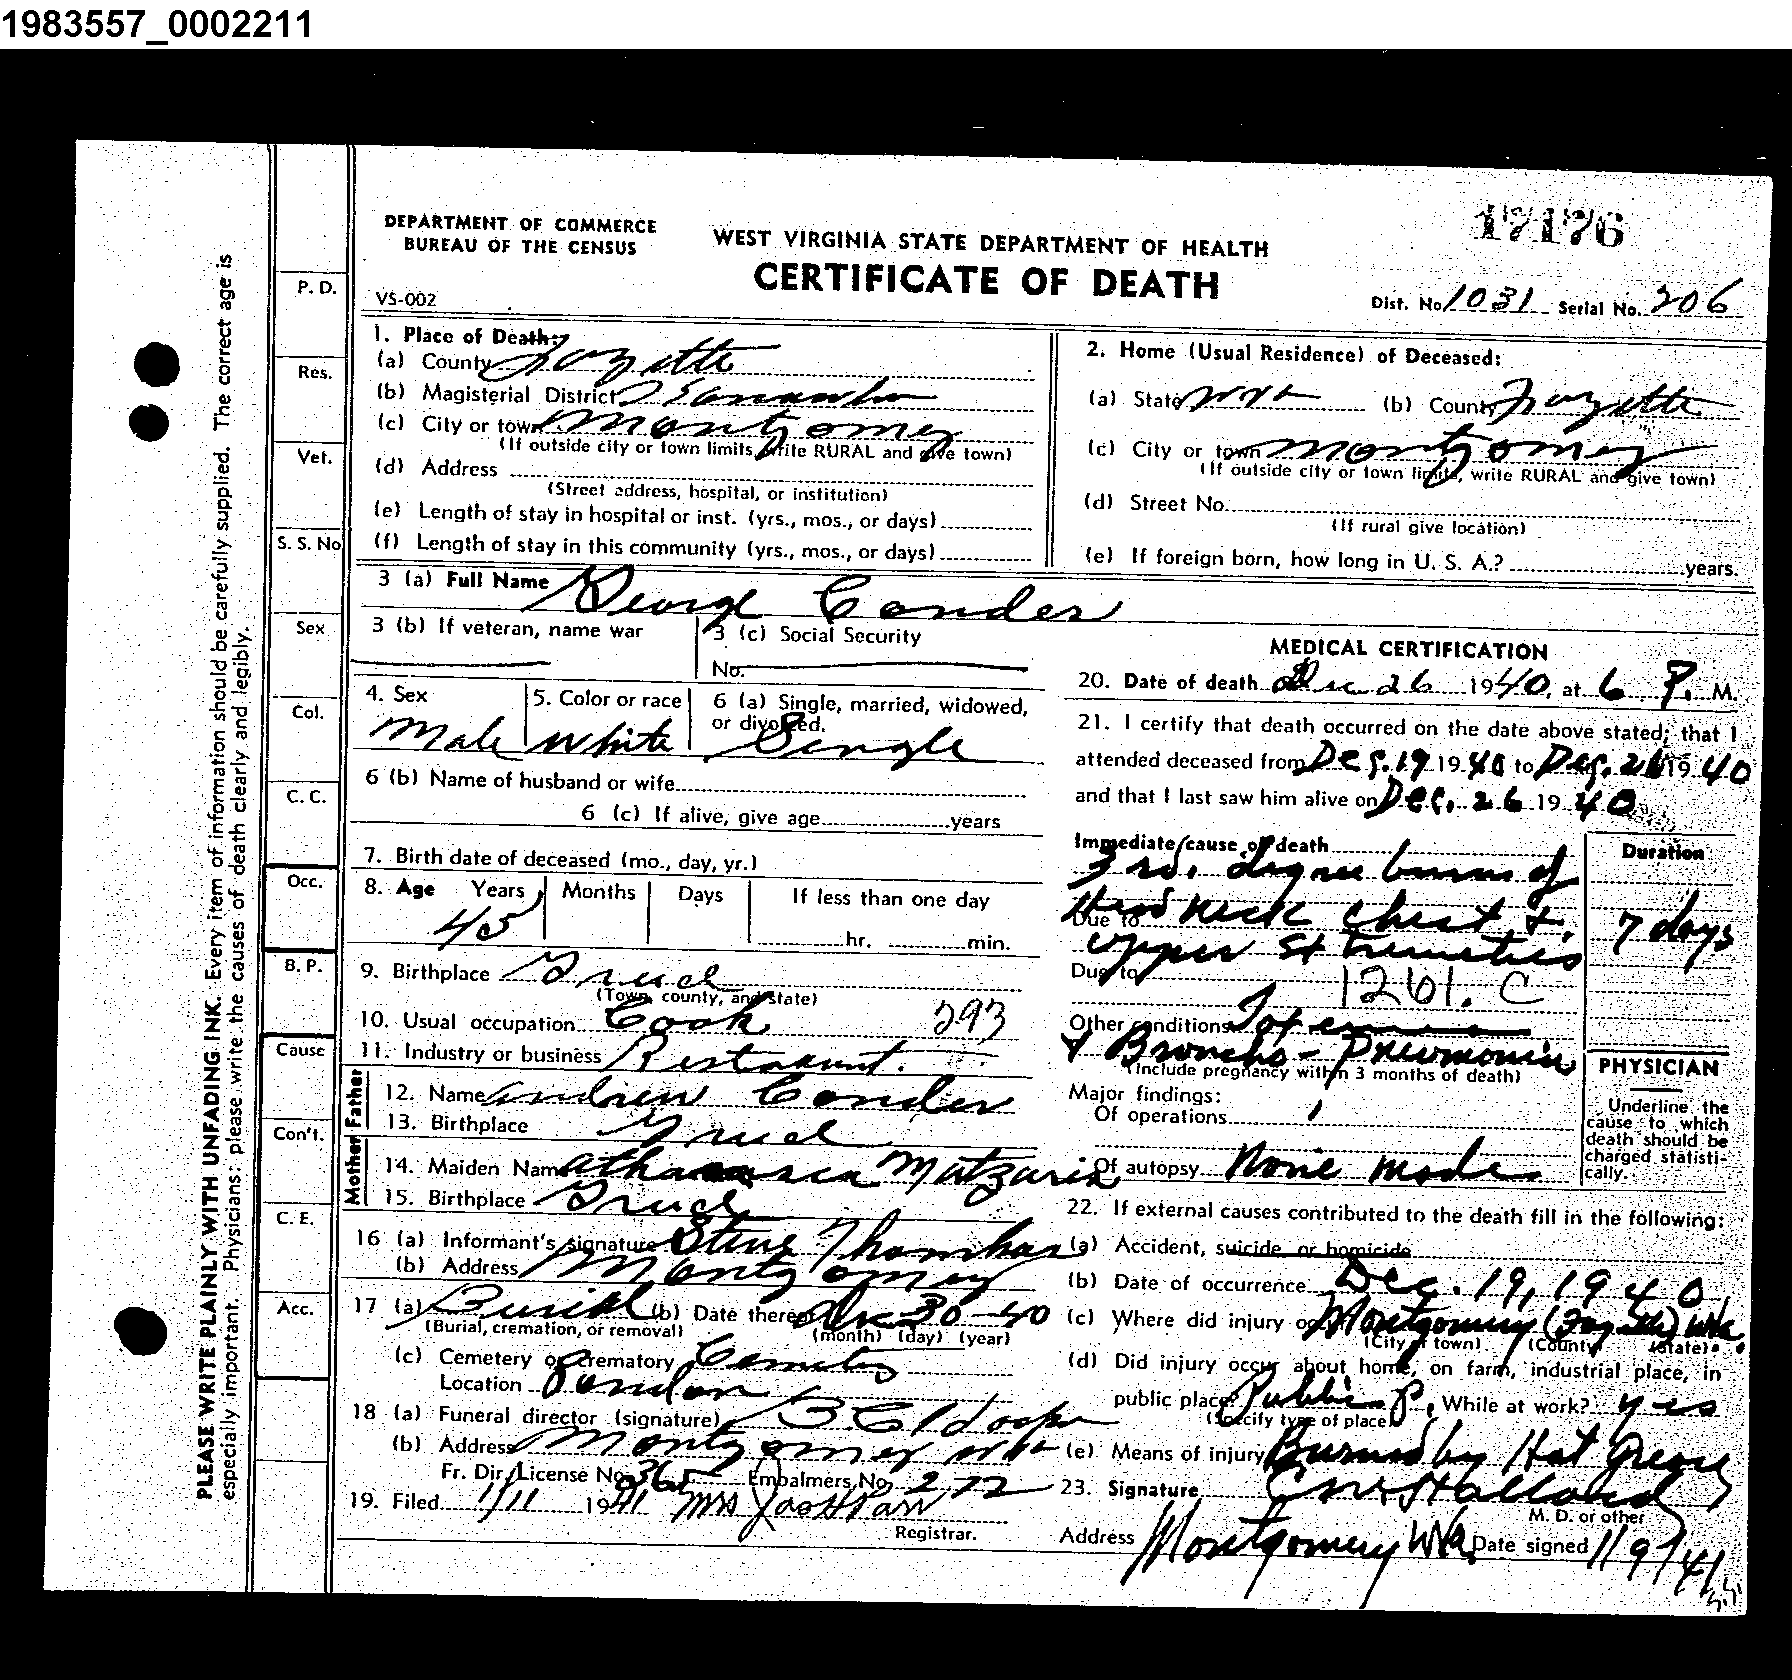 1983557_0002211
17176
DEPARTMENT OF COMMERCE
BUREAU OF THE CENSUS
WEST VIRGINIA STATE DEPARTMENT OF HEALTH
CERTIFICATE OF DEATH
VS-002
Dist. No. 1031 Serial No. 206
PLEASE WRITE PLAINLY WITH UNFADING INK. Every item of information should be carefully supplied. The correct age is
especially important. Physicians: please write the causes of death clearly and legibly.
P. D.
Res.
Vet.
S. S. No
Sex
Col.
C. C.
Occ.
B. P.
Cause
Con't.
C. E.
Acc.
1. Place of Death:
(a) County Fayette
(b) Magisterial District Kanawha
(c) City or town Montgomery
(If outside city or town limits, write RURAL and give town)
(d) Address
(Street address, hospital, or institution)
(e) Length of stay in hospital or inst. (yrs., mos., or days)
(f) Length of stay in this community (yrs., mos., or days)
2. Home (Usual Residence) of Deceased:
(a) State W Va (b) County Fayette
(c) City or town Montgomery
(If outside city or town limits, write RURAL and give town)
(d) Street No.
(If rural give location)
(e) If foreign born, how long in U. S. A.? years.
3 (a) Full Name George Conder
3 (b) If veteran, name war
3 (c) Social Security
No.
4. Sex
Male
5. Color or race
White
6 (a) Single, married, widowed,
or divorced.
Single
6 (b) Name of husband or wife
6 (c) If alive, give age years
7. Birth date of deceased (mo., day, yr.)
8. Age Years Months Days If less than one day
45 hr. min.
9. Birthplace
(Town, county, and state)
10. Usual occupation Cook 293
11. Industry or business Restaurant.
Father
12. Name Andrew Conder
13. Birthplace
Mother
14. Maiden Name Matzaris
15. Birthplace
16 (a) Informant's signature Steve
(b) Address Montgomery
17 (a) Burial (b) Date thereof Dec 30-40
(Burial, cremation, or removal) (month) (day) (year)
(c) Cemetery or crematory
Location
18 (a) Funeral director (signature)
(b) Address Montgomery W Va
Fr. Dir. License No. 365 Embalmers No. 272
19. Filed 1/11 1941 Mrs
Registrar.
MEDICAL CERTIFICATION
20. Date of death Dec 26 1940, at 6 P. M.
21. I certify that death occurred on the date above stated; that I
attended deceased from Dec. 19 1940 to Dec. 26 1940
and that I last saw him alive on Dec. 26 1940
Immediate cause of death
3rd. degree burns of
Due to Head neck chest &
upper Extremeties
Due to
1261. C
Duration
7 days
Other conditions Toxemia
& Broncho-Pneumonia
(Include pregnancy within 3 months of death)
Major findings:
Of operations
Of autopsy None made
PHYSICIAN
Underline the
cause to which
death should be
charged statisti-
cally.
22. If external causes contributed to the death fill in the following:
(a) Accident, suicide, or homicide
(b) Date of occurrence Dec. 19, 1940
(c) Where did injury occur Montgomery (Fayette) W Va.
(City or town) (County) (State)
(d) Did injury occur about home, on farm, industrial place, in
public place? Public P. While at work? yes
(Specify type of place)
(e) Means of injury Burned by Hot Grease
23. Signature
M. D. or other
Address Montgomery W Va. Date signed 1/9/41